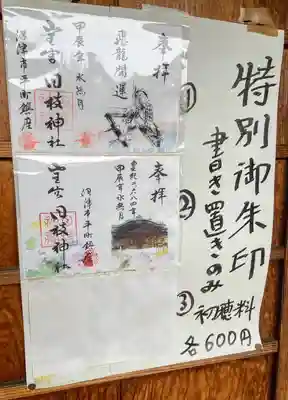 特別御朱印
書き置きのみ
初穂料
各600円
①
奉拝
飛龍開運
甲辰年水無月
日枝神社
沼津市平町鎮座
②
奉拝
皇紀二六八四年
甲辰年水無月
沼津市平町鎮座
日枝神社
③